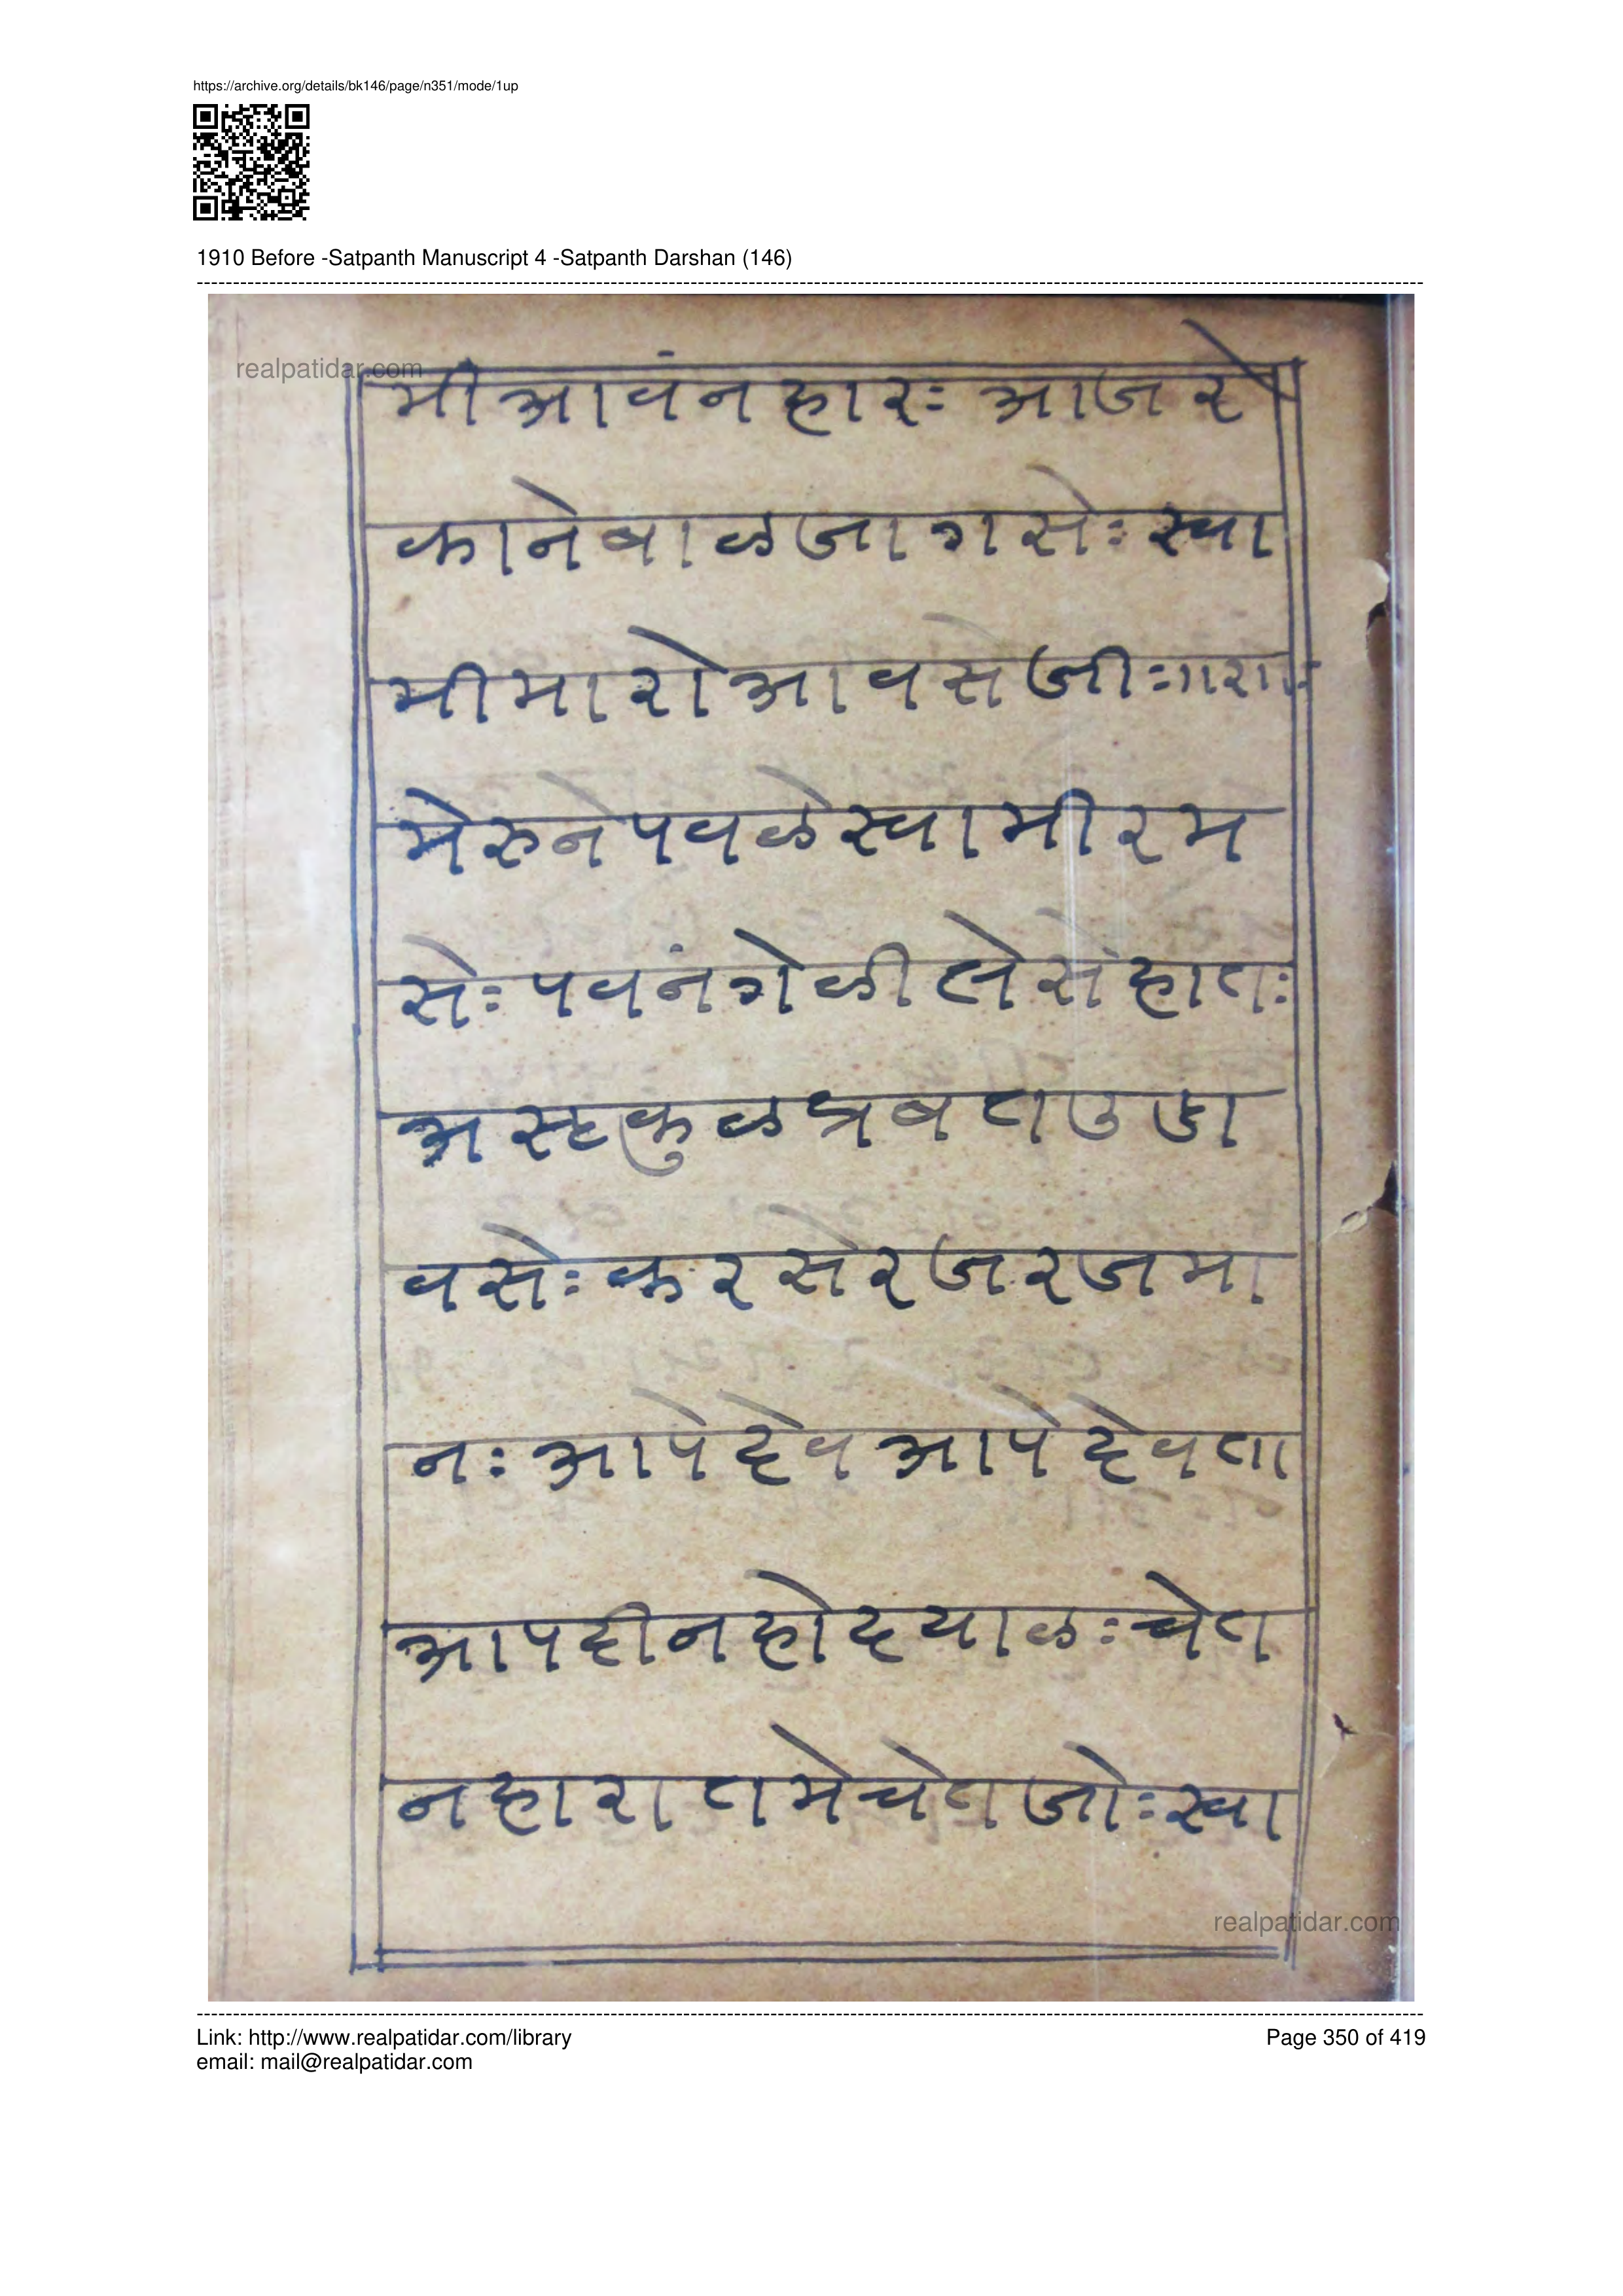 https://archive.org/details/bk146/page/n351/mode/1up
1910 Before -Satpanth Manuscript 4 -Satpanth Darshan (146)
realpatidar.com
मीआवंनहारः आजरे
कानेबाळजागसेः स्वा
मीमारोआवसेजीः
मेरुनेपवळेस्वामीरम
सेः पवनंगेळीलेसेहातः
अस्टकुळप्रबतउडा
वसेः करसेरजरजमा
नः आपेदेवआपेदेवता
आपदीनहोदयाळः चेत
नहारातमेचेतजोः स्वा
realpatidar.com
Link: http://www.realpatidar.com/library
Page 350 of 419
email: mail@realpatidar.com